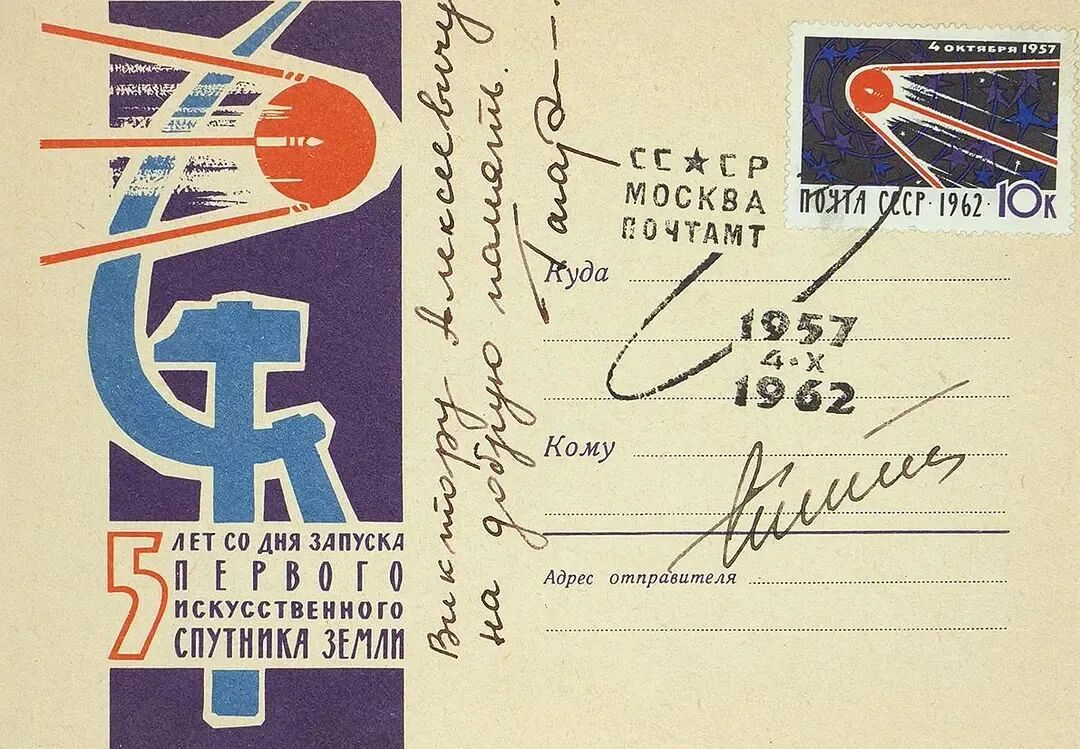 4 ОКТЯБРЯ 1957
ПОЧТА СССР·1962·10К
СС★СР
МОСКВА
ПОЧТАМТ
1957
4·X
1962
Виктору Алексеевичу
на добрую память.
Куда
Кому
Адрес отправителя
5 ЛЕТ СО ДНЯ ЗАПУСКА
ПЕРВОГО
ИСКУССТВЕННОГО
СПУТНИКА ЗЕМЛИ